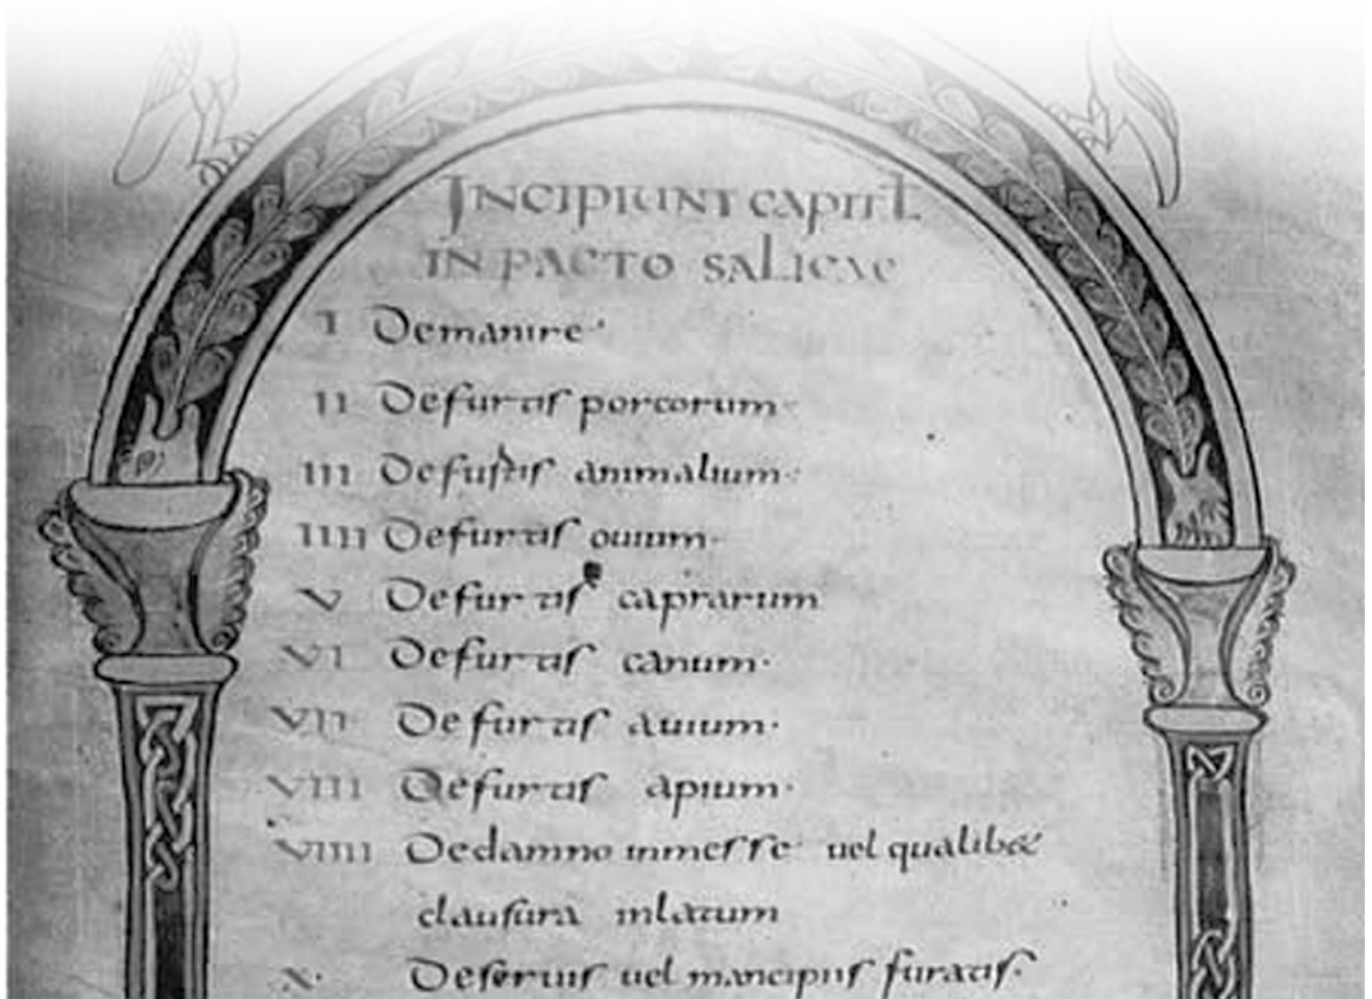 INCIPIUNT CAPITL
IN PACTO SALICAE
I Demanire·
II Defurtis porcorum·
III Defurtis animalium·
IIII Defurtis ouium·
V Defurtis caprarum
VI Defurtis canum·
VII Defurtis auium·
VIII Defurtis apium·
VIIII Dedamno inmesse uel qualibet
clausura inlatum
X· Deseruis uel mancipiis furatis·